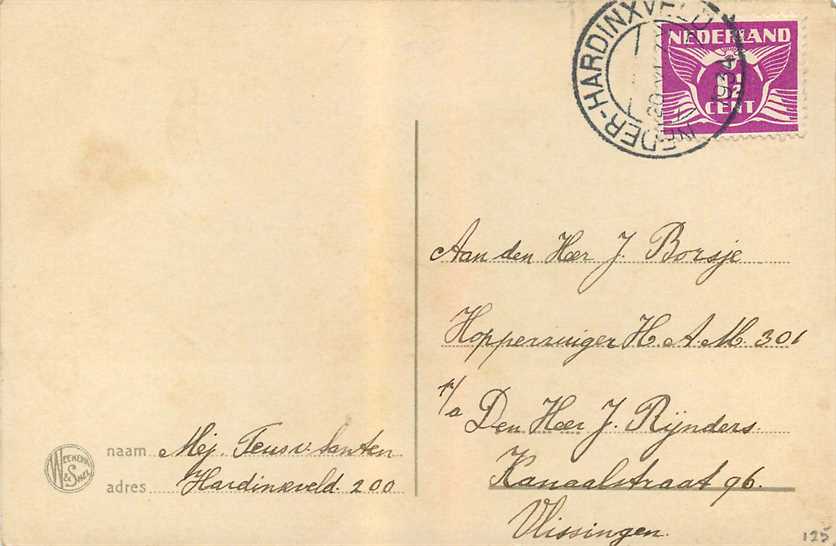 NEDER-HARDINXVELD
1934
NEDERLAND
CENT
Aan den Heer J. Borsje
Hopperzuiger H.A.M. 301
p/a Den Heer J. Rijnders.
Kanaalstraat 96.
Vlissingen.
naam Mej. Teus v. Santen
adres Hardinxveld. 200
WEENENK & SNEL
125